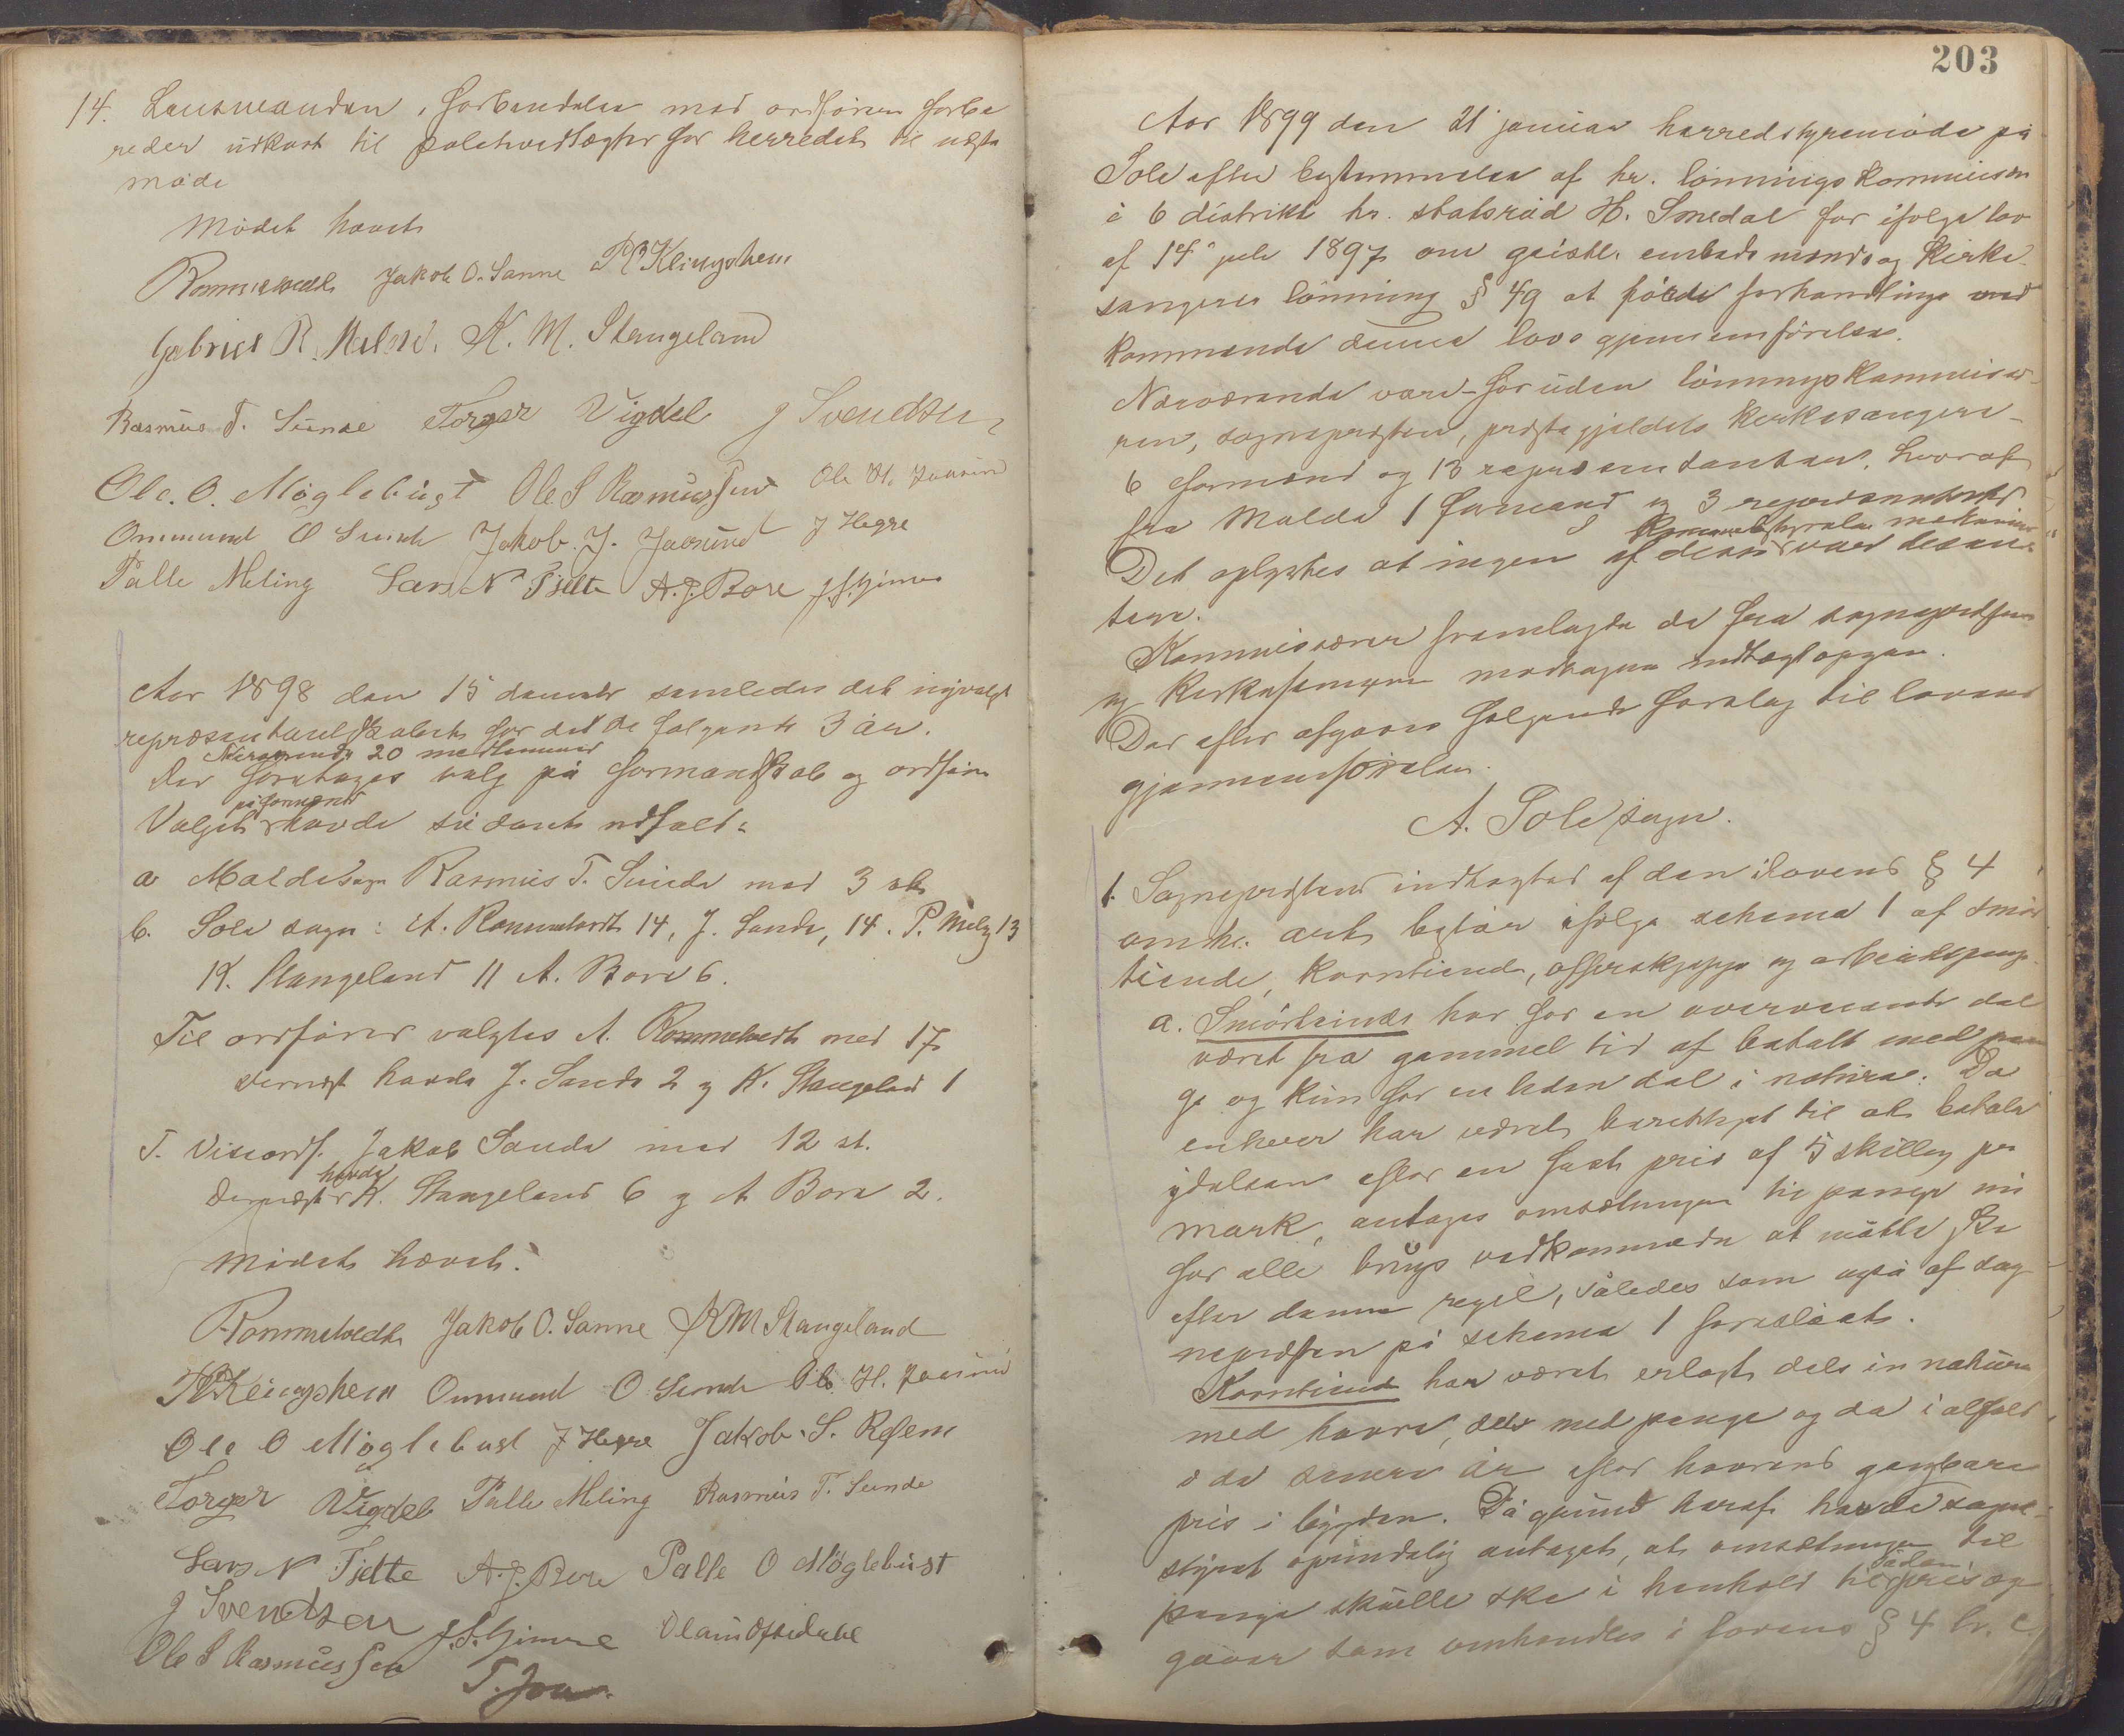 14. Lensmanden i forbindelse med ordføreren forbe
reder udkast til politivedtægter for herredet til næste
møde
Mødet hævet
Rommetvedt Jakob O. Sanne P Klingsheim
Gabriel R. K. M. Stangeland
Rasmus T. Sunde Torger Vigdel J Svendsen
Ole. O. Møglebust Ole S Rasmussen Ole H. Jaasund
Ommund O Sunde Jakob J. Jaasund J Hegre
Palle Meling Lars N Tjelte A. J. Bore J. S. Gimre
Aar 1898 den 15 decembr samledes det nyvalgte
repræsentantskabet for det de følgende 3 år.
Nærværende 20 medlemmer
Der foretoges valg på formandskab og ordfører
på formænd
Valget havde sådant udfald:
a Malde sogn Rasmus T. Sunde med 3 st
b. Sole sogn: A. Rommetvedt 14, J. Sande, 14. P. Meling 13
K. Stangeland 11 A. Bore 6.
Til ordfører valgtes A. Rommetvedt med 17
dernæst havde J. Sande 2 og K. Stangeland 1
T. Viseordf. Jakob Sande med 12 st.
havde
dernæst K. Stangeland 6 og A Bore 2.
Mødet hævet.
Rommetvedt Jakob O. Sanne K M Stangeland
P Klingsheim Ommund O Sunde Ole H. Jaasund
Ole O Møglebust J Hegre Jakob S.
Torger Vigdel Palle Meling Rasmus T. Sunde
Lars N Tjelte A. J. Bore Palle O Møglebust
J Svendsen J. S. Gimre
Ole S Rasmussen
203
Aar 1899 den 21 januar herredstyremøde på
Sole efter bestemmelse af hr. lønningskommissær
i 6 distrikt hr. statsråd H. Smedal for ifølge lov
af 14 juli 1897 om geistl. embedsmænds og kirke
sangeres lønning § 49 at føre forhandlinger ved
kommende denne lovs gjennemførelse.
Nærværende var foruden lønningskommissæ
ren, sognepræsten, præstegjeldets kirkesangere
6 formænd og 13 repræsentanter, hvoraf
fra Malde 1 formand og 3 repræsentanter
Det oplystes at ingen af dessa var
Kommissæren fremlagde de fra sognepræsten
og kirkesangeren modtagne indtægtsopgaver.
Der efter afgaves følgende forslag til lovens
gjennemførelse.
A. Sole sogn.
1. Sognepræstens indtægter af den i lovens § 4
omh. art består ifølge schema 1 af smør
tiende, korntiende, offerskjeppe og arbeidspenge.
a. Smørtiende har for en overveiende del
været fra gammel tid af betalt med pen
ge og kun for en liden del i natura. Da
enhver har været berettiget til at betale
ydelsen efter en fast pris af 5 skilling pr
mark, antages omsætningen til penge nu
for alle brugs vedkommende at måtte ske
efter denne regel, således som også af sog
nepræsten på schema 1 foreslået.
Korntiende har været erlagt dels in natura
med havre, dels med penge og da i alfald
i de senere år efter havrens gangbare
pris i bygden. På grund heraf havde sogne
styret oprindelig antaget, at omsætningen til
sådan
penge skulle ske i henhold til pris op
gaver som omhandles i lovens § 4 lr. c.